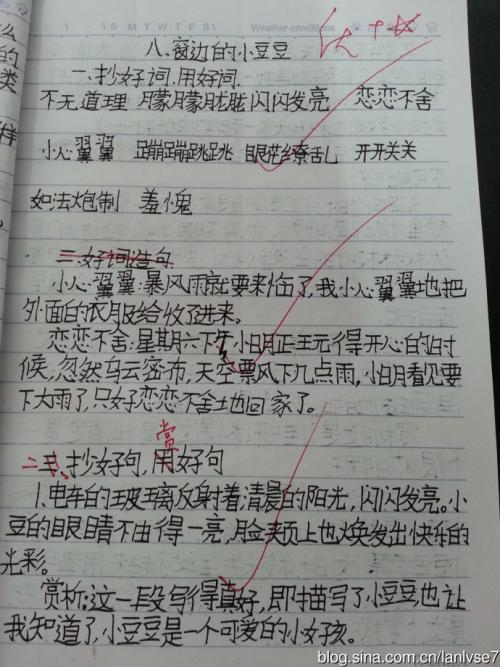 S M T W T F S Weather conditions
八、窗边的小豆豆
一、抄好词、用好词.
不无道理 朦朦胧胧 闪闪发亮 恋恋不舍
小心翼翼 蹦蹦跳跳 眼花缭乱 开开关关
如法炮制 羞愧
二、好词造句.
小心翼翼:暴风雨就要来临了,我小心翼翼地把
外面的衣服给收了进来。
恋恋不舍:星期六下午小明正玩得开心的时
候,忽然乌云密布,天空飘下几点雨,小明看见要
下大雨了,只好恋恋不舍地回家了。
赏
二、抄好句,用好句
1.电车的玻璃放射着清晨的阳光,闪闪发亮。小
豆的眼睛不由得一亮,脸颊上也焕发出快乐的
光彩。
赏析:这一段写得真好,即描写了小豆豆,也让
我知道了,小豆豆是一个可爱的小女孩。
blog.sina.com.cn/lanlvse7